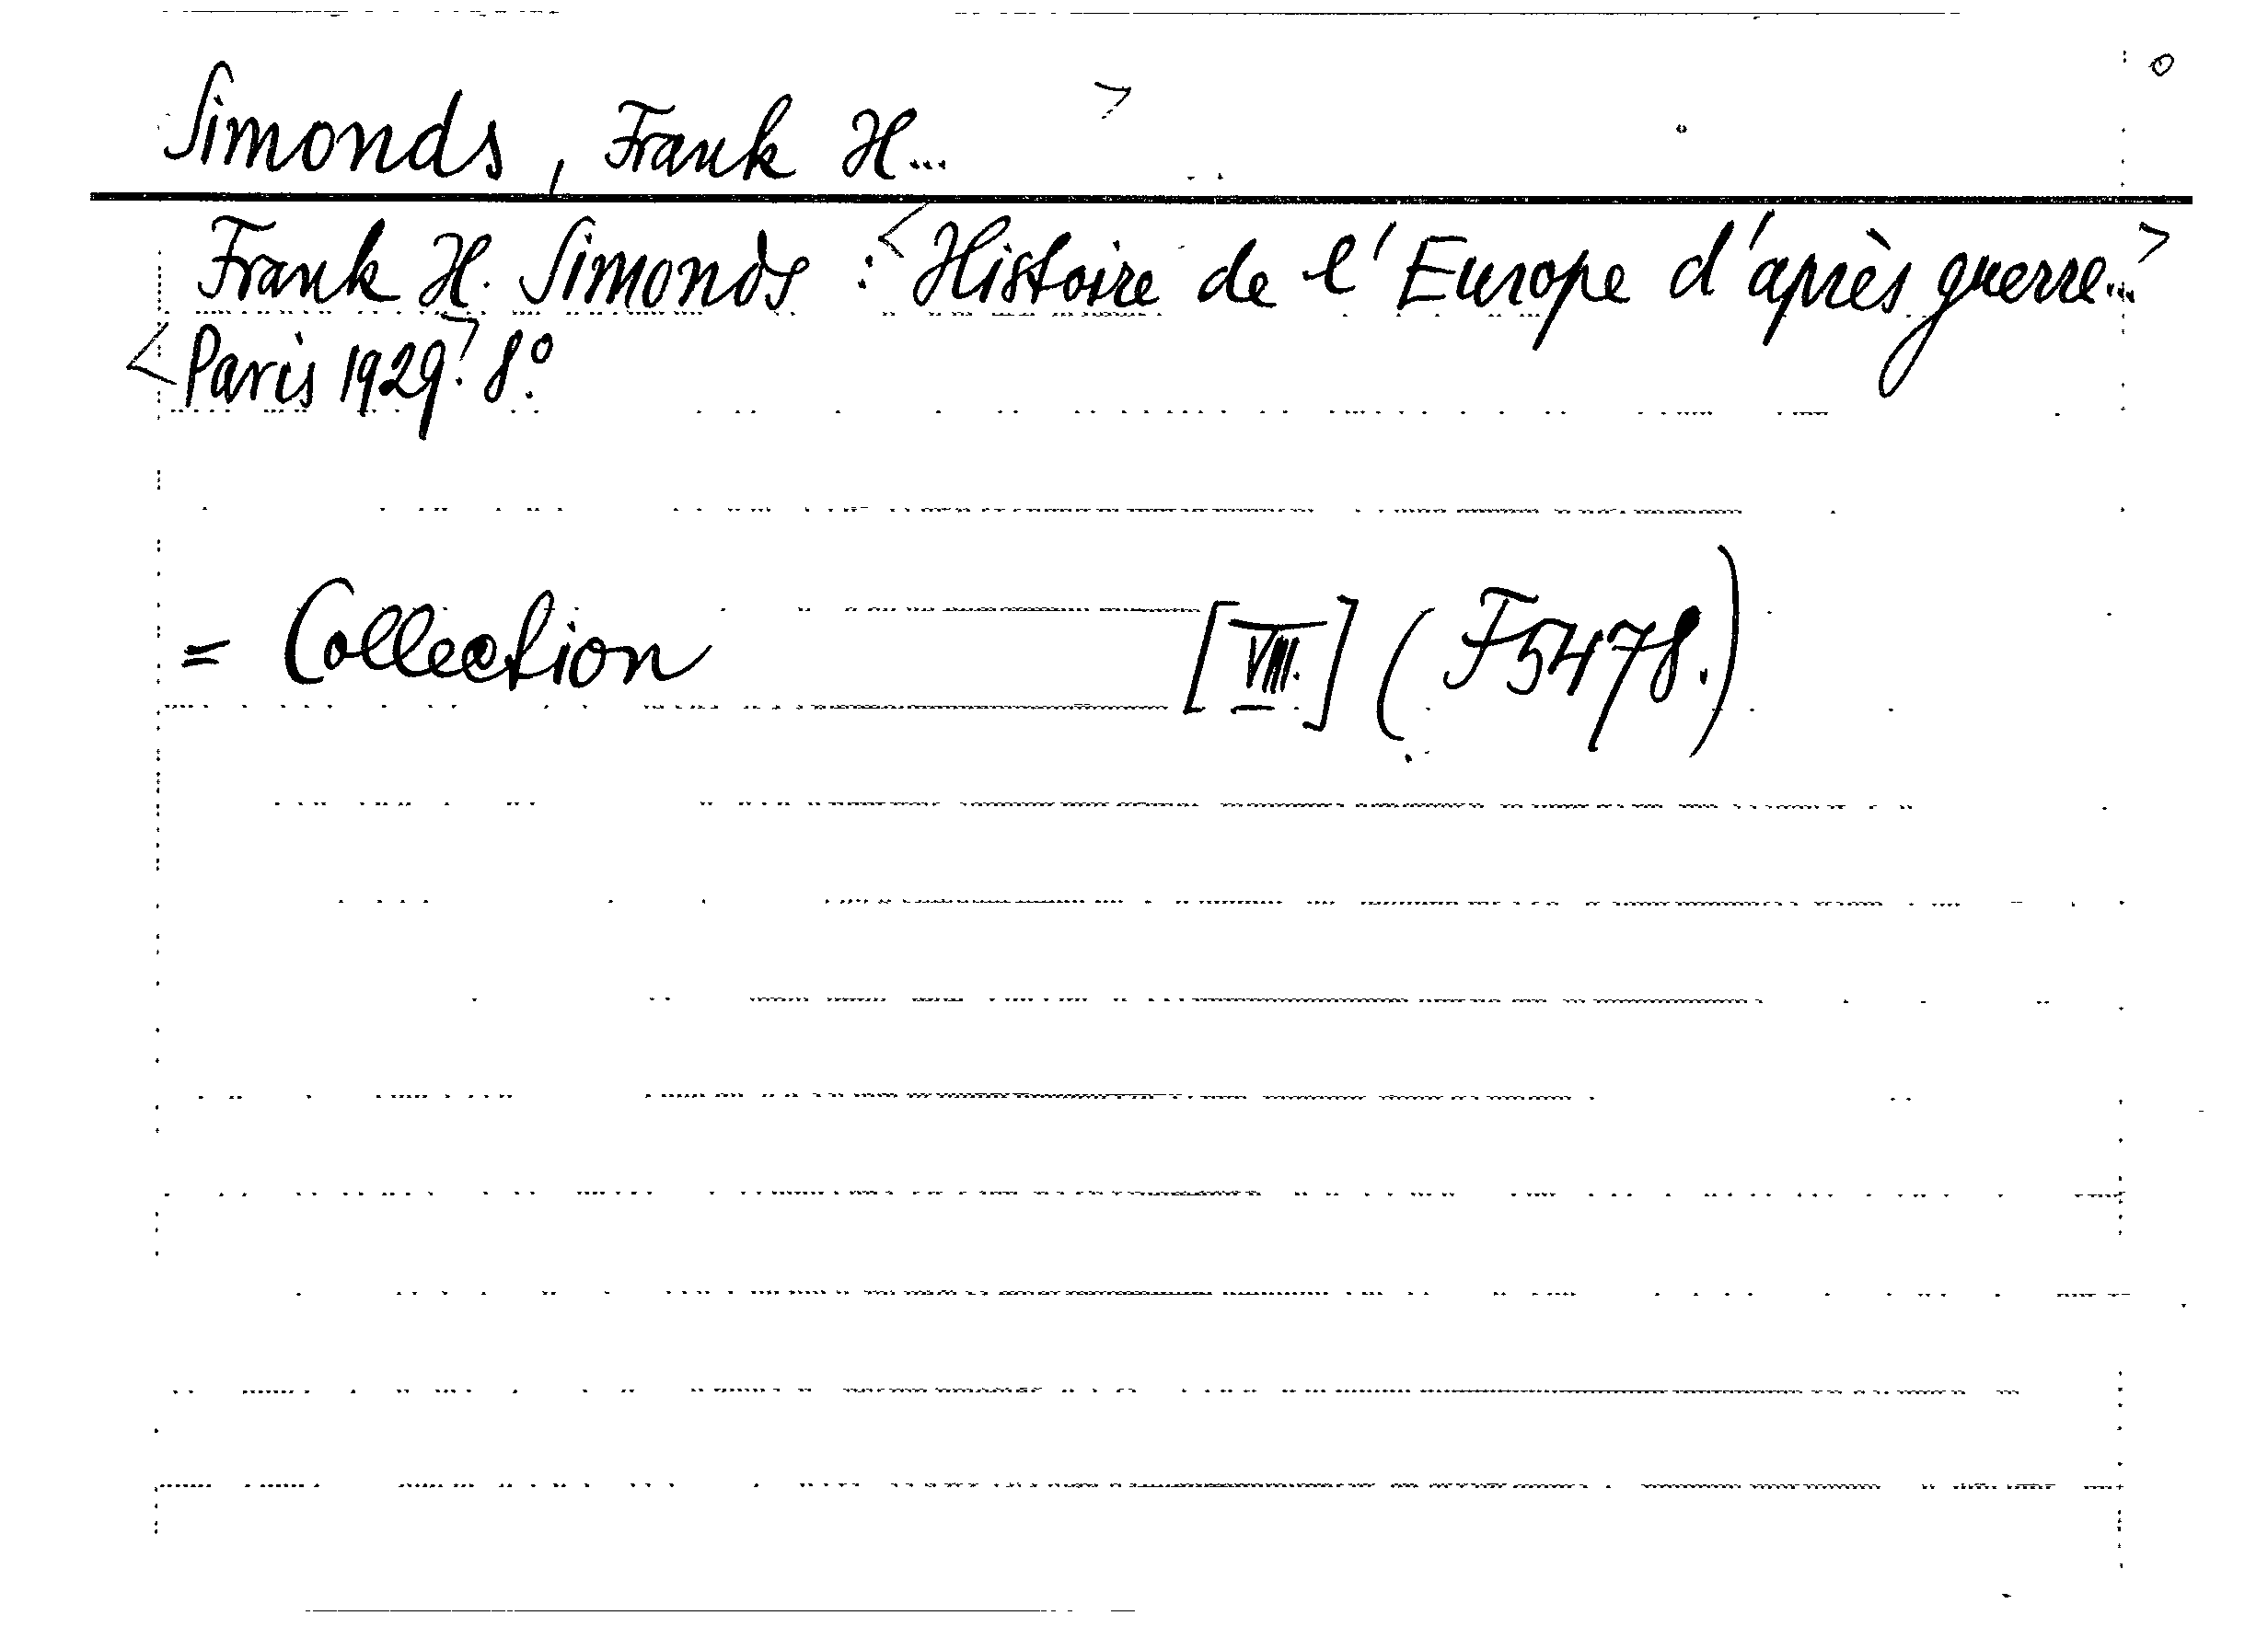 Simonds, Frank H... >
Frank H. Simonds : <Histoire de l'Europe d'après guerre...>
<Paris 1929>. 8°.
= Collection [VIII.] (F5478.)